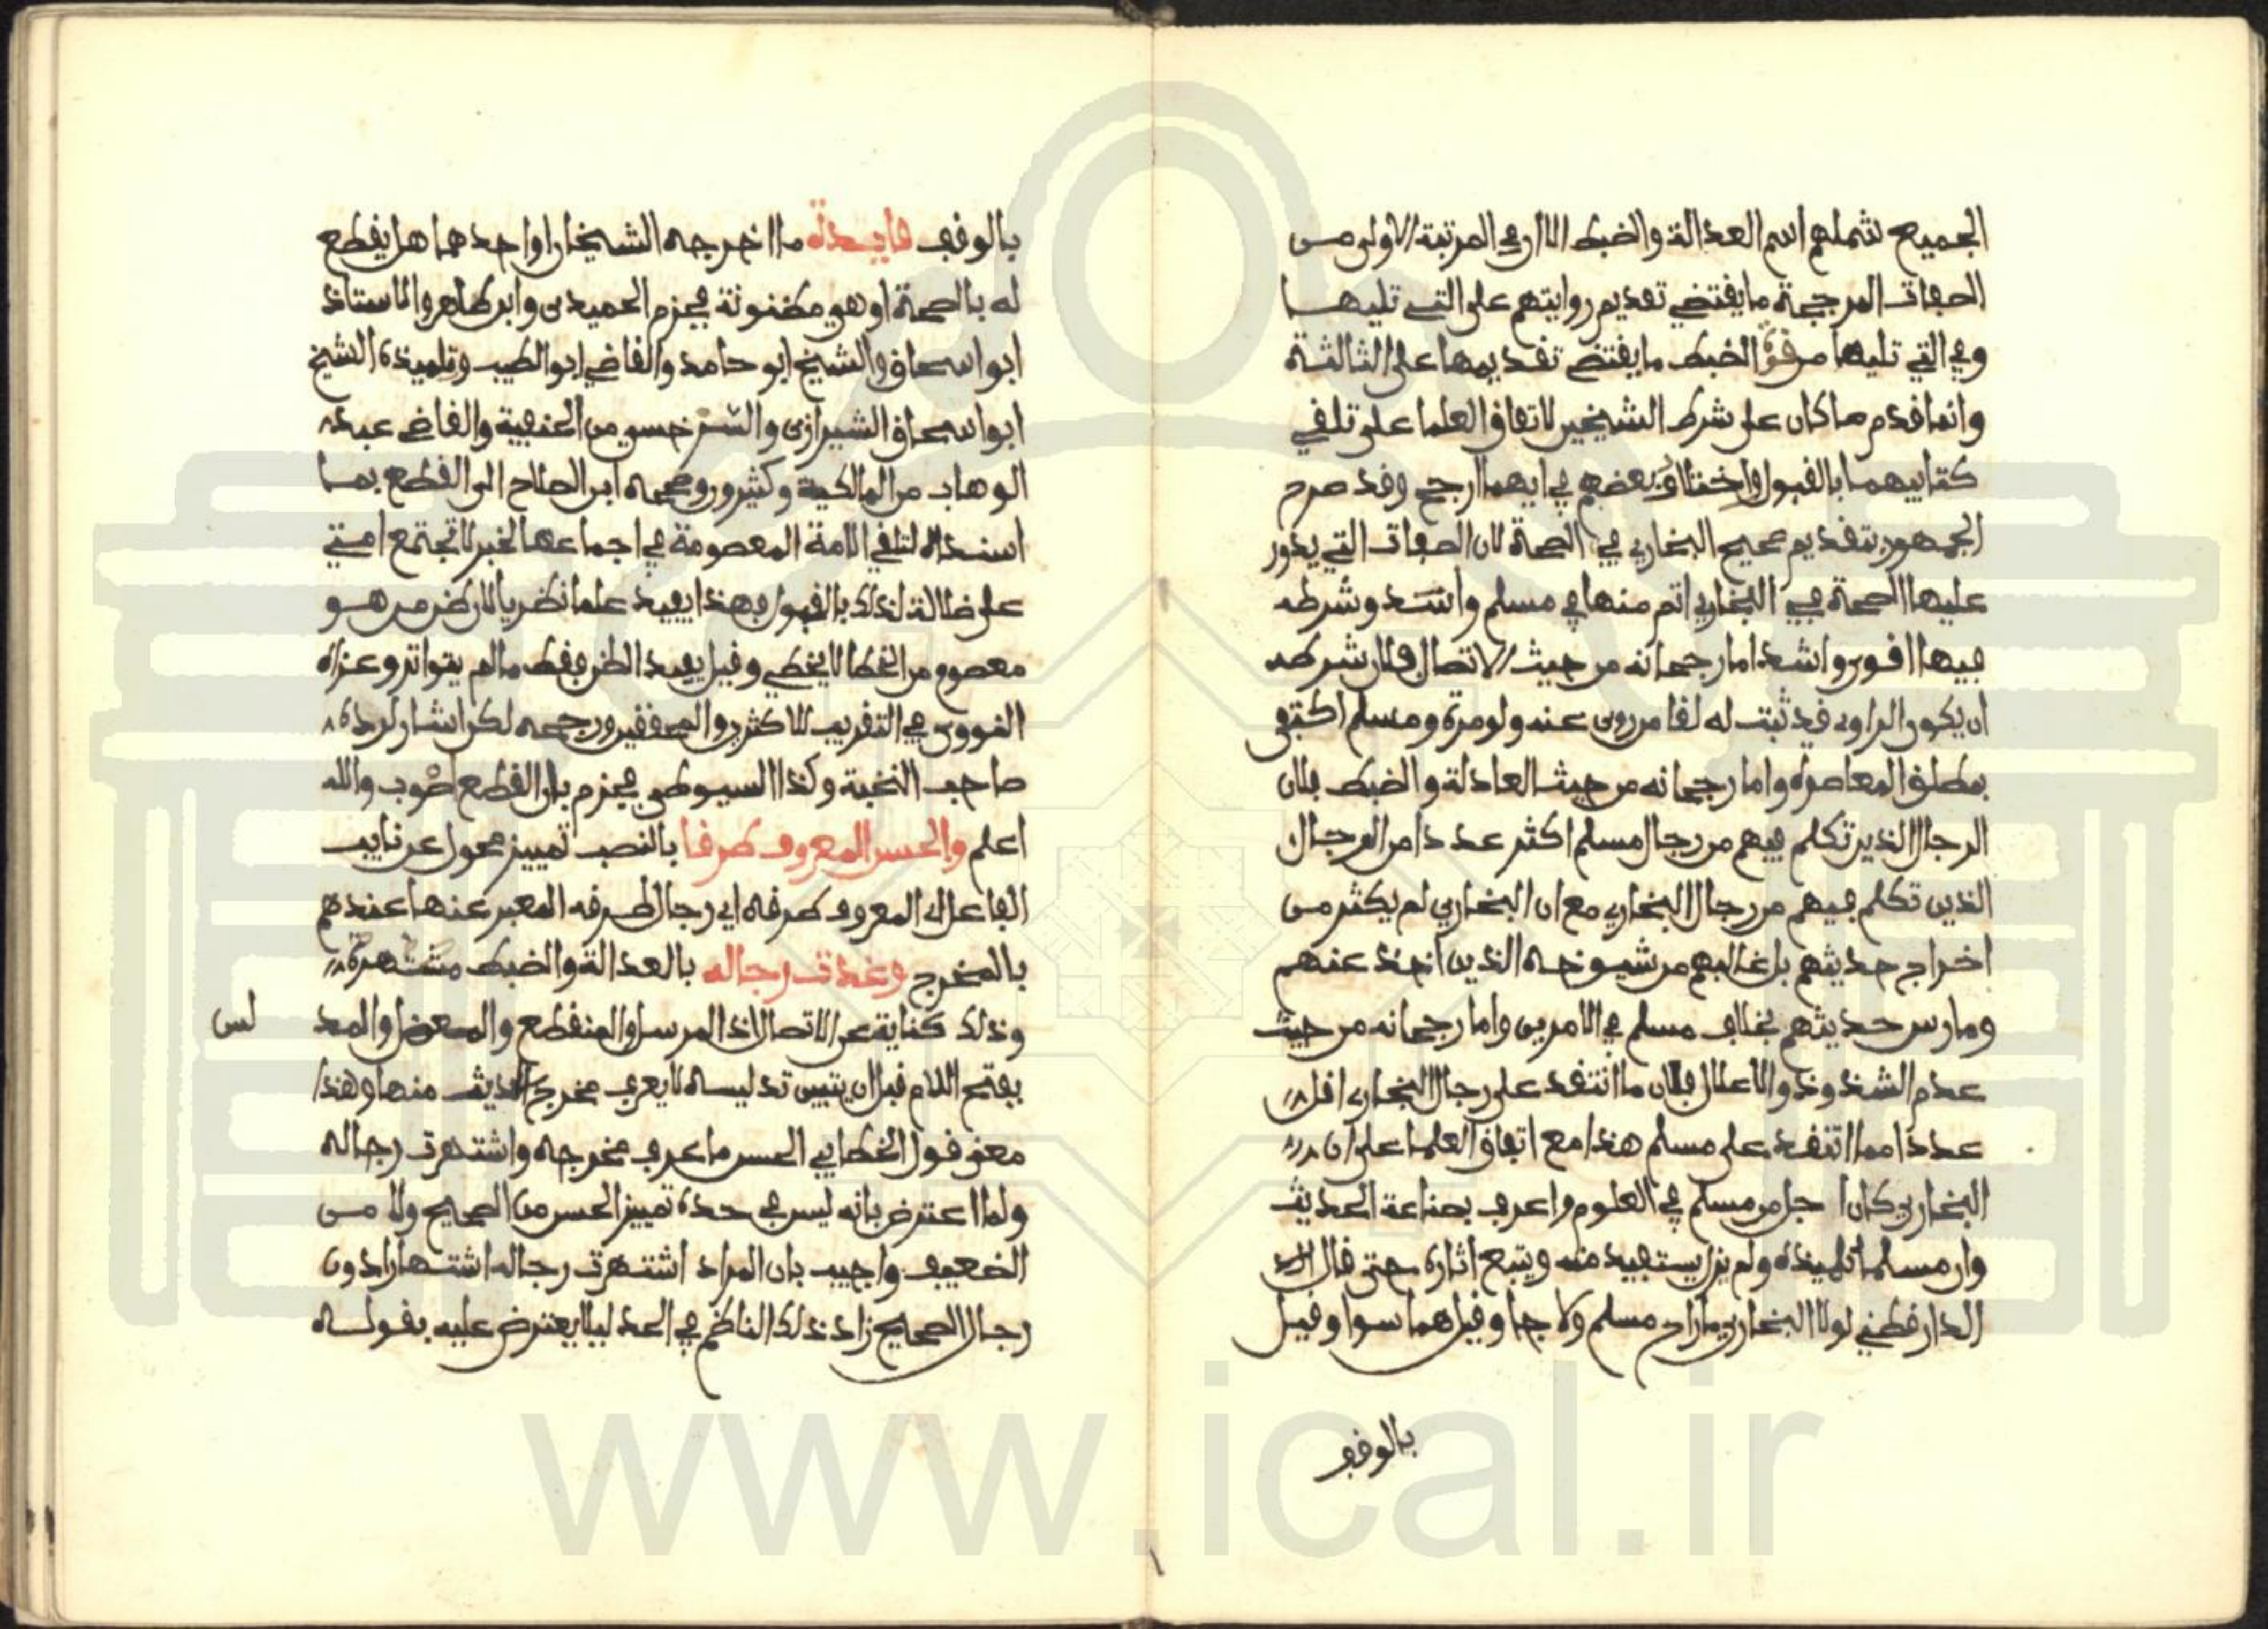 الجميع شملهم اسم العدالة والضبط الا ان في المرتبة الاولى من
الصفات المرجحة ما يقتضي تقديم روايتهم على التي تليها
وفي التي تليها من قوة الضبط ما يقتضي تقديمها على الثالثة
وانما قدم ما كان على شرط الشيخين لاتفاق العلما على تلقي
كتابيهما بالقبول واختلاف بعضهم في ايهما ارجح وقد صرح
الجمهور بتقديم صحيح البخاري في الصحة لان الصفات التي يدور
عليها الصحة في البخاري اتم منها في مسلم واشد وشرطه
فيها اقوى واشد اما رجحانه من حيث الاتصال فلان شرطه
ان يكون الراوي قد ثبت له لقا من روى عنه ولو مرة ومسلم اكتفى
بمطلق المعاصرة واما رجحانه من حيث العدالة والضبط فلان
الرجال الذين تكلم فيهم من رجال مسلم اكثر عددا من الرجال
الذين تكلم فيهم من رجال البخاري مع ان البخاري لم يكثر من
اخراج حديثهم بل غالبهم من شيوخه الذين اخذ عنهم
ومارس حديثهم بخلاف مسلم في الامرين واما رجحانه من حيث
عدم الشذوذ والاعلال فلان ما انتقد على رجال البخاري اقل
عددا مما انتقد على مسلم هذا مع اتفاق العلما على ان
البخاري كان اجل من مسلم في العلوم واعرف بصناعة الحديث
وان مسلما تلميذه ولم يزل يستفيد منه ويتبع اثاره حتى قال
الدارقطني لولا البخاري ما راح مسلم ولا جا وقيل هما سوا وقيل
بالوقف
بالوقف فايدة ما اخرجه الشيخان او احدهما هل يقطع
له بالصحة او هي مظنونة فجزم الحميدي وابن طاهر والاستاذ
ابو اسحاق والشيخ ابو حامد والقاضي ابو الطيب وتلميذه الشيخ
ابو اسحاق الشيرازي والسرخسي من الحنفية والقاضي عبد
الوهاب من المالكية وكثيرون وصححه ابن الصلاح الى القطع بما
اسنداه لتلقي الامة المعصومة في اجماعها لخبر لا تجتمع امتي
على ضلالة لذلك بالقبول فهذا يفيد علما نظريا لان ظن من هو
معصوم من الخطا لا يخطي وقيل يفيد الظن فقط ما لم يتواتر وعزاه
النووي في التقريب للاكثرين والمحققين ورجحه لكن اشار لرده
صاحب النخبة وكذا السيوطي فجزم بان القطع اصوب والله
اعلم والحسن المعروف طرقا بالنصب تمييز محول عن نايب
الفاعل اي المعروف طرقه اي رجال طرقه المعبر عنها عندهم
بالمخرج وغدت رجاله بالعدالة والضبط مشتهرة
وذلك كناية عن الاتصال اذ المرسل والمنقطع والمعضل والمد
لس
بفتح اللام قبل ان يتبين تدليسه لا يعرف مخرج الحديث منها وهذا
معنى قول الخطابي الحسن ما عرف مخرجه واشتهرت رجاله
ولما اعترض بانه ليس في حده تمييز الحسن من الصحيح ولا من
الضعيف واجيب بان المراد اشتهرت رجاله اشتهارا دون
رجال الصحيح زاد ذلك الناظم في الحد ليلا يعترض عليه بقوله
www.ical.ir